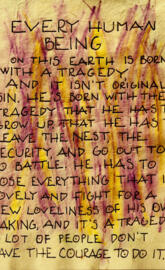 EVERY HUMAN
BEING
ON THIS EARTH IS BORN
WITH A TRAGEDY,
AND IT ISN'T ORIGINAL
SIN. HE IS BORN WITH THE
TRAGEDY THAT HE HAS TO
GROW UP. THAT HE HAS TO
LEAVE THE NEST, THE
SECURITY, AND GO OUT TO
DO BATTLE. HE HAS TO
LOSE EVERYTHING THAT IS
LOVELY AND FIGHT FOR A
NEW LOVELINESS OF HIS OWN
MAKING, AND IT'S A TRAGEDY.
A LOT OF PEOPLE DON'T
HAVE THE COURAGE TO DO IT.